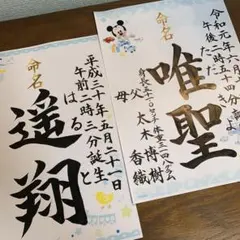 命名
遥翔
はると
平成三十年五月二十一日
午前二時三分誕生
命名
唯聖
令和元年六月
午後二時五十四分
父 大木 博樹
母 香織